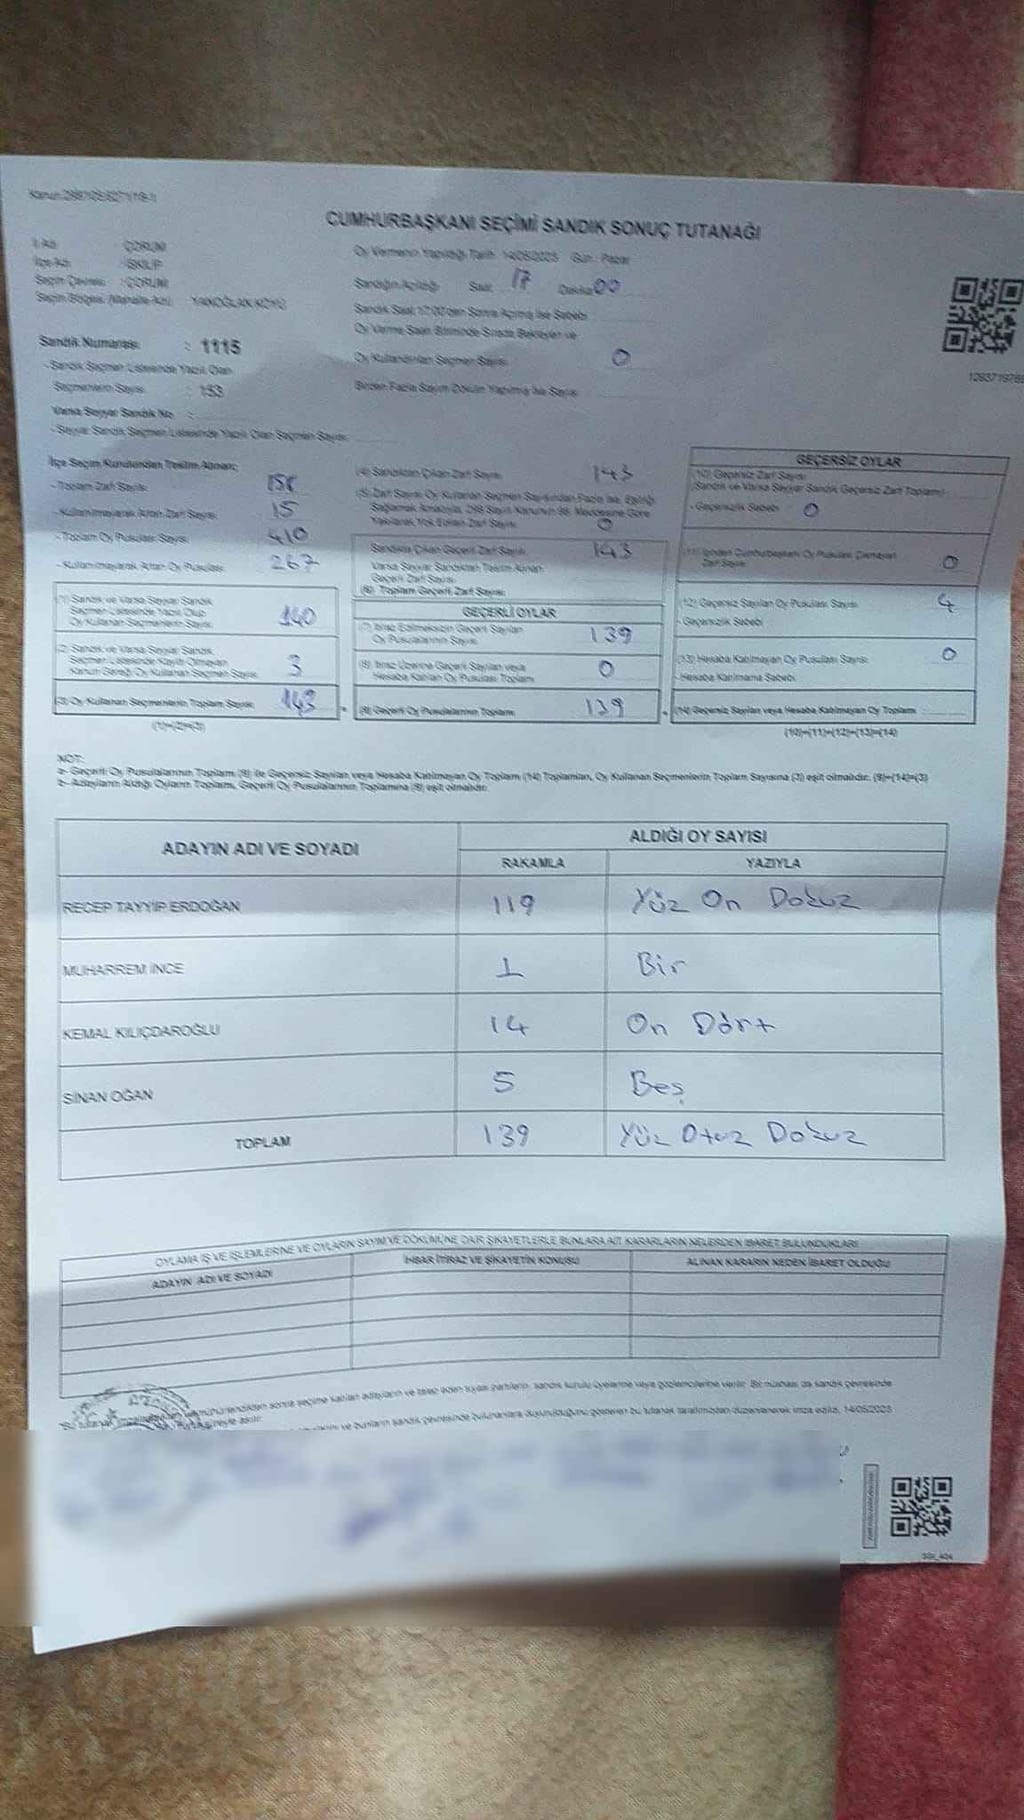 CUMHURBAŞKANI SEÇİMİ SANDIK SONUÇ TUTANAĞI
İl Adı : ÇORUM
İlçe Adı : İSKİLİP
Seçim Çevresi : ÇORUM
Seçim Bölgesi (Mahalle Adı) YANOĞLAN KÖYÜ
Oy Vermenin Yapıldığı Tarih: 14/05/2023 Gün : Pazar
Sandığın Açıldığı Saat: 17 Dakika: 00
Sandık Saat 17:00'den Sonra Açılmış İse Sebebi
Oy Verme Saati Bitiminde Sırada Bekleyen ve
Oy Kullandırılan Seçmen Sayısı: 0
Birden Fazla Sayım Döküm Yapılmış İse Sayısı:
Sandık Numarası : 1115
- Sandık Seçmen Listesinde Yazılı Olan
Seçmenlerin Sayısı : 153
Varsa Seyyar Sandık No :
- Seyyar Sandık Seçmen Listesinde Yazılı Olan Seçmen Sayısı:
İlçe Seçim Kurulundan Teslim Alınan;
- Toplam Zarf Sayısı:
- Kullanılmayarak Artan Zarf Sayısı: 15
- Toplam Oy Pusulası Sayısı: 410
- Kullanılmayarak Artan Oy Pusulası: 267
(1) Sandık ve Varsa Seyyar Sandık
Seçmen Listesinde Yazılı Olup
Oy Kullanan Seçmenlerin Sayısı: 140
(2) Sandık ve Varsa Seyyar Sandık
Seçmen Listesinde Kayıtlı Olmayan
Kanun Gereği Oy Kullanan Seçmen Sayısı: 3
(3) Oy Kullanan Seçmenlerin Toplam Sayısı: 143
(1)+(2)=(3)
(4) Sandıktan Çıkan Zarf Sayısı: 143
(5) Zarf Sayısı Oy Kullanan Seçmen Sayısından Fazla İse, Eşitliği
Sağlamak Amacıyla, 298 Sayılı Kanunun 98. Maddesine Göre
Yakılarak Yok Edilen Zarf Sayısı: 0
Sandıkta Çıkan Geçerli Zarf Sayısı: 143
Varsa Seyyar Sandıktan Teslim Alınan
Geçerli Zarf Sayısı:
(6) Toplam Geçerli Zarf Sayısı:
GEÇERLİ OYLAR
(7) İtiraz Edilmeksizin Geçerli Sayılan
Oy Pusulalarının Sayısı: 139
(8) İtiraz Üzerine Geçerli Sayılan veya
Hesaba Katılan Oy Pusulası Toplamı: 0
(9) Geçerli Oy Pusulalarının Toplamı: 139
GEÇERSİZ OYLAR
(10) Geçersiz Zarf Sayısı
(Sandık ve Varsa Seyyar Sandık Geçersiz Zarf Toplamı)
- Geçersizlik Sebebi: 0
(11) İçinden Cumhurbaşkanı Oy Pusulası Çıkmayan
Zarf Sayısı: 0
(12) Geçersiz Sayılan Oy Pusulası Sayısı: 4
- Geçersizlik Sebebi:
(13) Hesaba Katılmayan Oy Pusulası Sayısı: 0
- Hesaba Katılmama Sebebi:
(14) Geçersiz Sayılan veya Hesaba Katılmayan Oy Toplamı:
(10)+(11)+(12)+(13)=(14)
NOT:
a- Geçerli Oy Pusulalarının Toplamı (9) ile Geçersiz Sayılan veya Hesaba Katılmayan Oy Toplam (14) Toplamları, Oy Kullanan Seçmenlerin Toplam Sayısına (3) eşit olmalıdır. (9)+(14)=(3)
b- Adayların Aldığı Oyların Toplamı, Geçerli Oy Pusulalarının Toplamına (9) eşit olmalıdır.
ADAYIN ADI VE SOYADI
ALDIĞI OY SAYISI
RAKAMLA YAZIYLA
RECEP TAYYİP ERDOĞAN 119 Yüz On Dokuz
MUHARREM İNCE 1 Bir
KEMAL KILIÇDAROĞLU 14 On Dört
SİNAN OĞAN 5 Beş
TOPLAM 139 Yüz Otuz Dokuz
OYLAMA İŞ VE İŞLEMLERİNE VE OYLARIN SAYIM VE DÖKÜMÜNE DAİR ŞİKAYETLERLE BUNLARA AİT KARARLARIN NELERDEN İBARET BULUNDUKLARI
ADAYIN ADI VE SOYADI İHBAR İTİRAZ VE ŞİKAYETİN KONUSU ALINAN KARARIN NEDEN İBARET OLDUĞU
sonra seçime katılan adayların ve talep eden siyasi partilerin, sandık kurulu üyelerine veya gözlemcilerine verilir. Bir nüshası da sandık çevresinde
ve bunların sandık çevresinde bulunanlara duyurulduğunu gösteren bu tutanak tarafımızdan düzenlenerek imza edildi. 14/05/2023